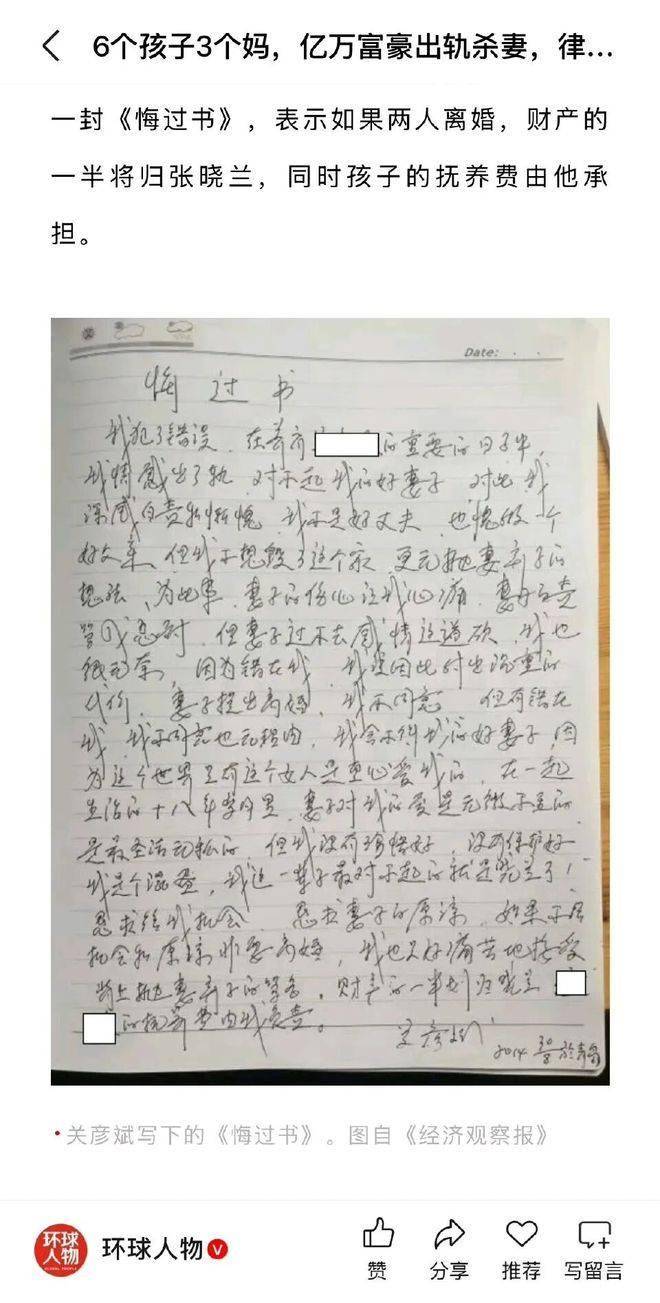 6个孩子3个妈，亿万富豪出轨杀妻，律...
一封《悔过书》，表示如果两人离婚，财产的
一半将归张晓兰，同时孩子的抚养费由他承
担。
Date:
悔过书
我犯了错误，在养育 的重要的日子里，
我情感出了轨，对不起我的好妻子，对此我
深感自责和惭愧，我不是好丈夫，也愧做一个
好父亲，但我不想毁了这个家，更无抛妻弃子的
想法，为此事，妻子的伤心让我心痛，妻
，但妻子过不去感情这道砍，我也
很无奈，因为错在我，我要因此付出沉重的
代价，妻子提出离婚，我不同意，但有错在
我，我不同意也无理由，我舍不得我的好妻子，因
为这个世界只有这个女人是真心爱我的，在一起
生活的十八年岁月里，妻子对我的爱是无微不至的
是最圣洁 的，但我没有珍惜好，没有保护好
我是个混蛋，我这一辈子最对不起的就是晓兰了！
恳求给我机会 恳求妻子的原谅，如果不给
机会和原谅非要离婚，我也只好痛苦地接受
背上抛妻弃子的骂名，财产的一半划归晓兰
的抚养费由我负责。
关彦斌
2014 於青岛
•关彦斌写下的《悔过书》。图自《经济观察报》
环球
人物
环球人物
赞 分享 推荐 写留言